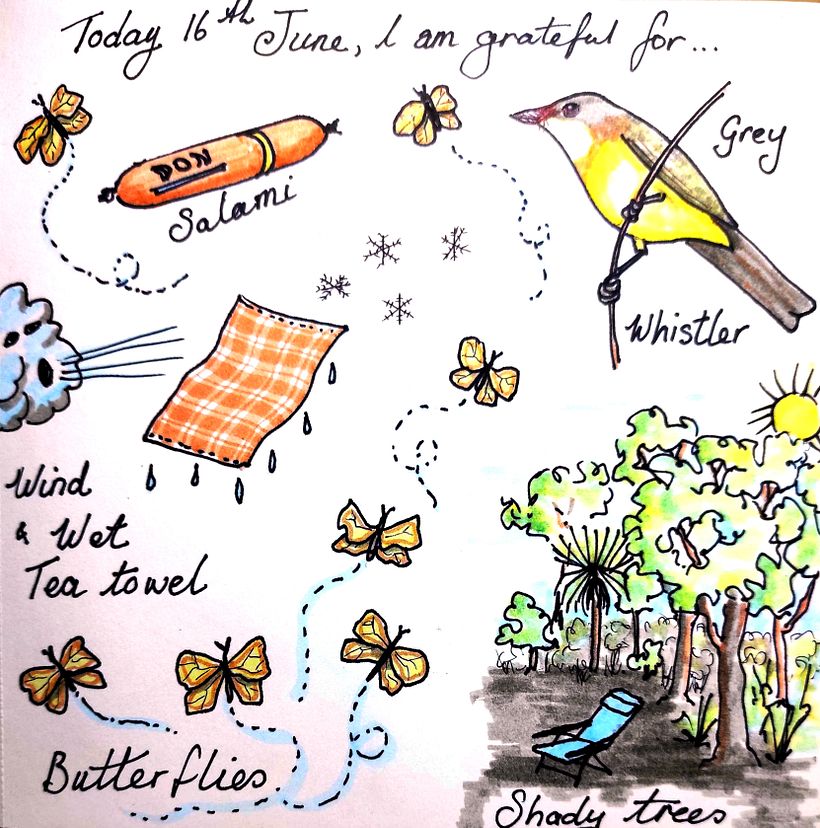 Today 16th June, I am grateful for...
DON
Salami
Grey
Whistler
Wind
& Wet
Tea towel
Butterflies
Shady trees